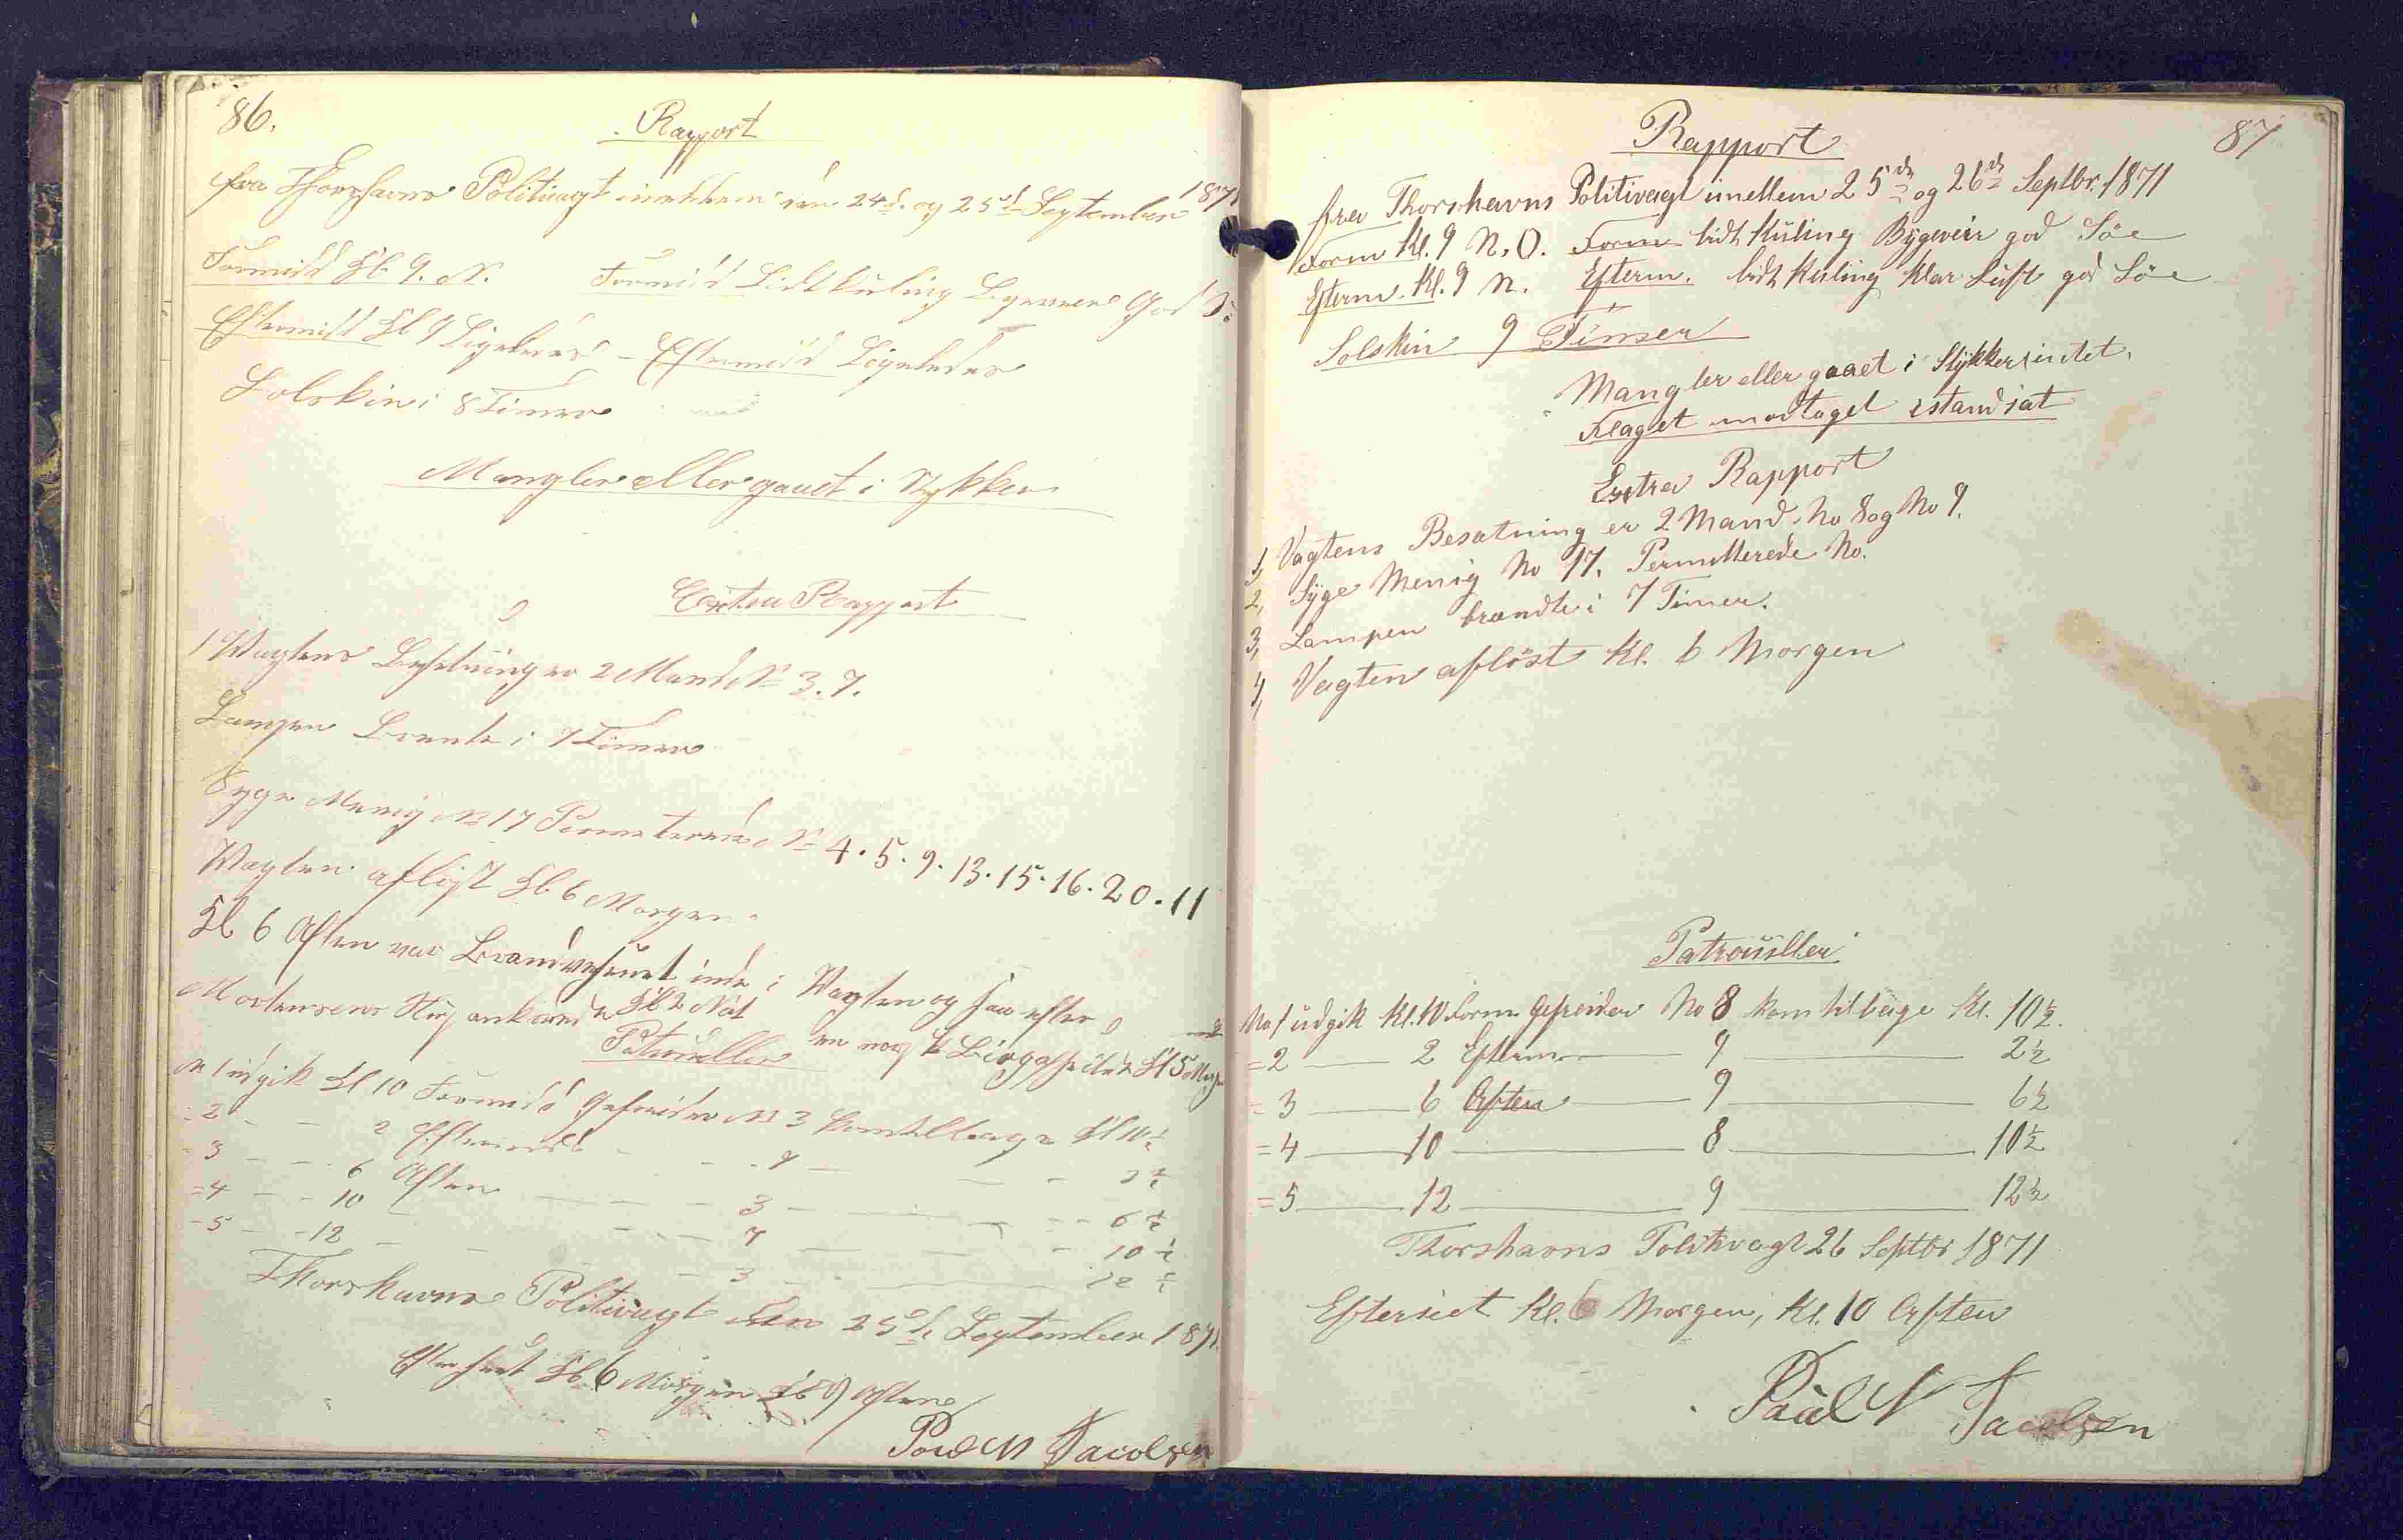 86.
Rapport
fra Thorshavns Politivagt imellem den 24d. og 25d. September 1871
Formidd Kl. 9. N. Formidd Lidt Kuling Bygeveir God Sö
Eftermidd Kl 9 Ligeledes - Eftermidd Ligeledes
Solskin i 8 Timer
Mangler eller gaaet i Stykker
Extra Rapport
1 Vagtens Besetning er 2 Mand No 3. 7.
Lampen Brente i 7 Timer
Syge Menig No 17 Permeterede No 4. 5. 9. 13. 15. 16. 20. 11
Vagten aflöst Kl 6 Morgen
Kl 6 Aften var Brandvesenet inde i Vagten og saa efter
Mortensens Kl 2 Nat Kl 5 Morgen
Patrouller
No 1 udgik Kl 10 Formidd Gefreider No 3 kom tilbage Kl 10½
=2 - - 2 Eftermidd - - 7 - - - 2½
=3 - - 6 Aften - - 3 - - - 6½
=4 - - 10 - - 7 - - - 10½
=5 - - 12 - - 3 - - - 12½
Thorshavns Politivagt den 25d. September 1871.
Efterseet Kl. 6 Morgen Kl 9 Aften
Poul N Jacobsen
87
Rapport
fra Thorshavns Politivagt imellem 25de og 26de Septbr. 1871
Form Kl. 9 N. O. Form lidt Kuling Bygeveir god Söe
Efterm. Kl. 9 N. Efterm. lidt Kuling Klar Luft god Söe
Solskin 9 Timer
Mangler eller gaaet i Stykker, intet.
Flaget modtaget istandsat
Extra Rapport
1, Vagtens Besatning er 2 Mand, No 8 og No 9.
2, Syge Menig No 17. Permitterede No.
3, Lampen brændte i 7 Timer.
4, Vagten aflöst Kl. 6 Morgen
Patrouller
No 1 udgik Kl. 10 Form. Gefreider No 8 kom tilbage Kl. 10½.
=2 — 2 Efterm — 9 — 2½
=3 — 6 Aften — 9 — 6½
=4 — 10 — 8 — 10½
=5 — 12 — 9 — 12½
Thorshavns Politivagt 26 Septbr 1871
Efterseet Kl. 6 Morgen, Kl. 10 Aften
Paul N Jacobsen